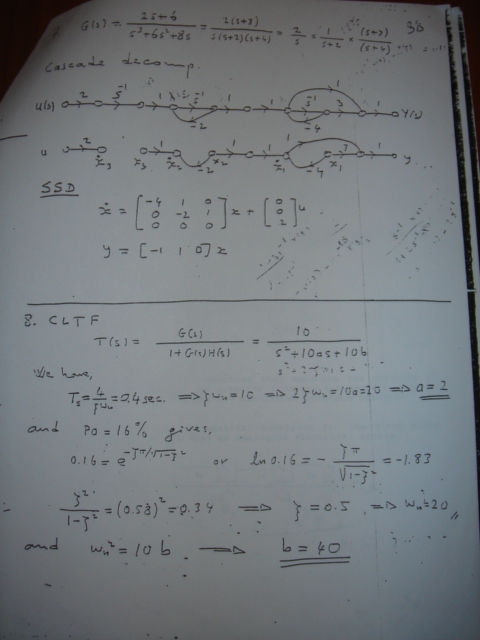 7. G(s) = (2s+6)/(s³+6s²+8s) = 2(s+3)/(s(s+2)(s+4)) = 2/s × 1/(s+2) × (s+3)/(s+4)
38
Cascade decomp.
U(s) 2 s⁻¹ 1 s⁻¹ 1 1 s⁻¹ 3 1 1 Y(s)
-2 -4
u 2 ẋ₃ x₃ 1 ẋ₂ -2 x₂ 1 1 ẋ₁ -4 x₁ 3 1 1 y
SSD
ẋ = [-4 1 0; 0 -2 1; 0 0 0] x + [0; 0; 2] u
y = [-1 1 0] x
8. CLTF
T(s) = G(s)/(1+G(s)H(s)) = 10/(s²+10as+10b)
We have,
Ts = 4/ζωn = 0.4 sec. ⇒ ζωn = 10 ⇒ 2ζωn = 10a = 20 ⇒ a = 2
and PO = 16% gives,
0.16 = e^(-ζπ/√(1-ζ²)) or ln 0.16 = - ζπ/√(1-ζ²) = -1.83
ζ²/(1-ζ²) = (0.58)² = 0.34 ⇒ ζ = 0.5 ⇒ ωn = 20,,
and ωn² = 10 b ⇒ b = 40